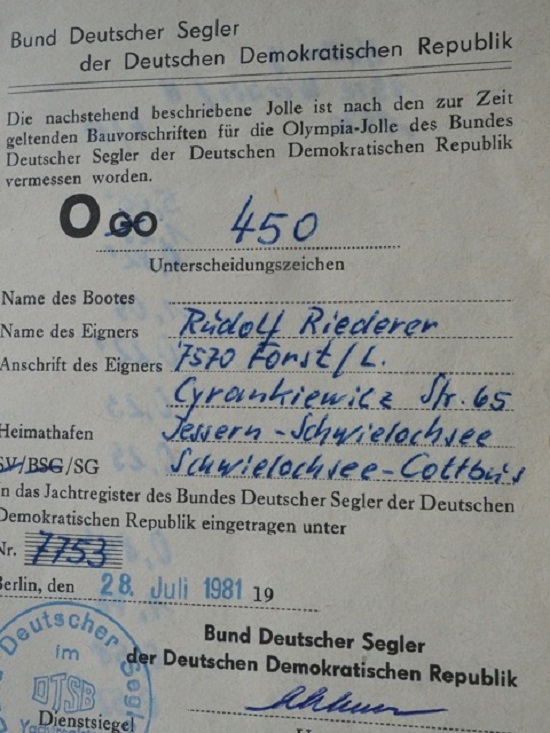 Bund Deutscher Segler
der Deutschen Demokratischen Republik
Die nachstehend beschriebene Jolle ist nach den zur Zeit
geltenden Bauvorschriften für die Olympia-Jolle des Bundes
Deutscher Segler der Deutschen Demokratischen Republik
vermessen worden.
O GO 450
Unterscheidungszeichen
Name des Bootes
Name des Eigners Rudolf Riederer
Anschrift des Eigners 7570 Forst/L.
Cyrankiewicz Str. 65
Heimathafen Jessern-Schwielochsee
SV/BSG/SG Schwielochsee-Cottbus
in das Jachtregister des Bundes Deutscher Segler der Deutschen
Demokratischen Republik eingetragen unter
Nr. 7753
Berlin, den 28. Juli 1981 19
Bund Deutscher Segler
der Deutschen Demokratischen Republik
Deutscher Segl
im
DTSB
Dienstsiegel